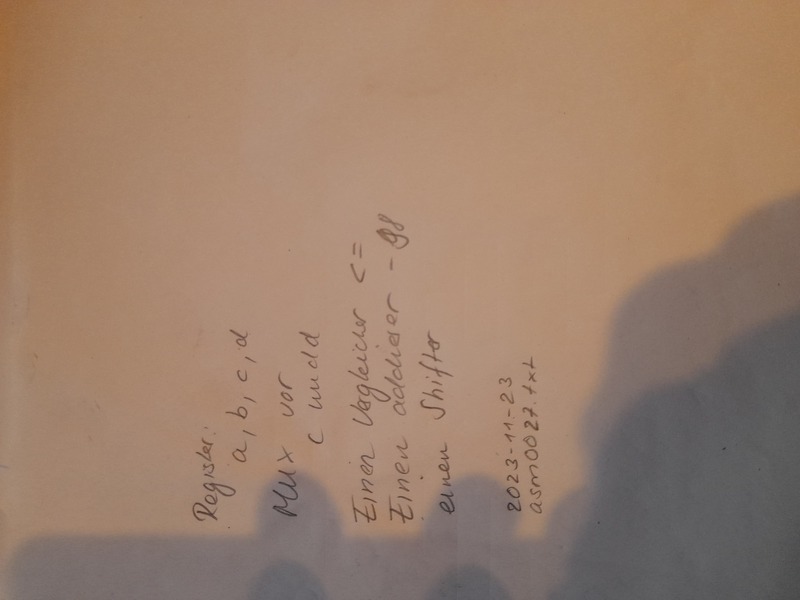 Register:
a, b, c, d
MUX vor
c und d
Einen Vergleicher <=
Einen addierer - 98
einen Shifter
2023-11-23
asm0027.txt